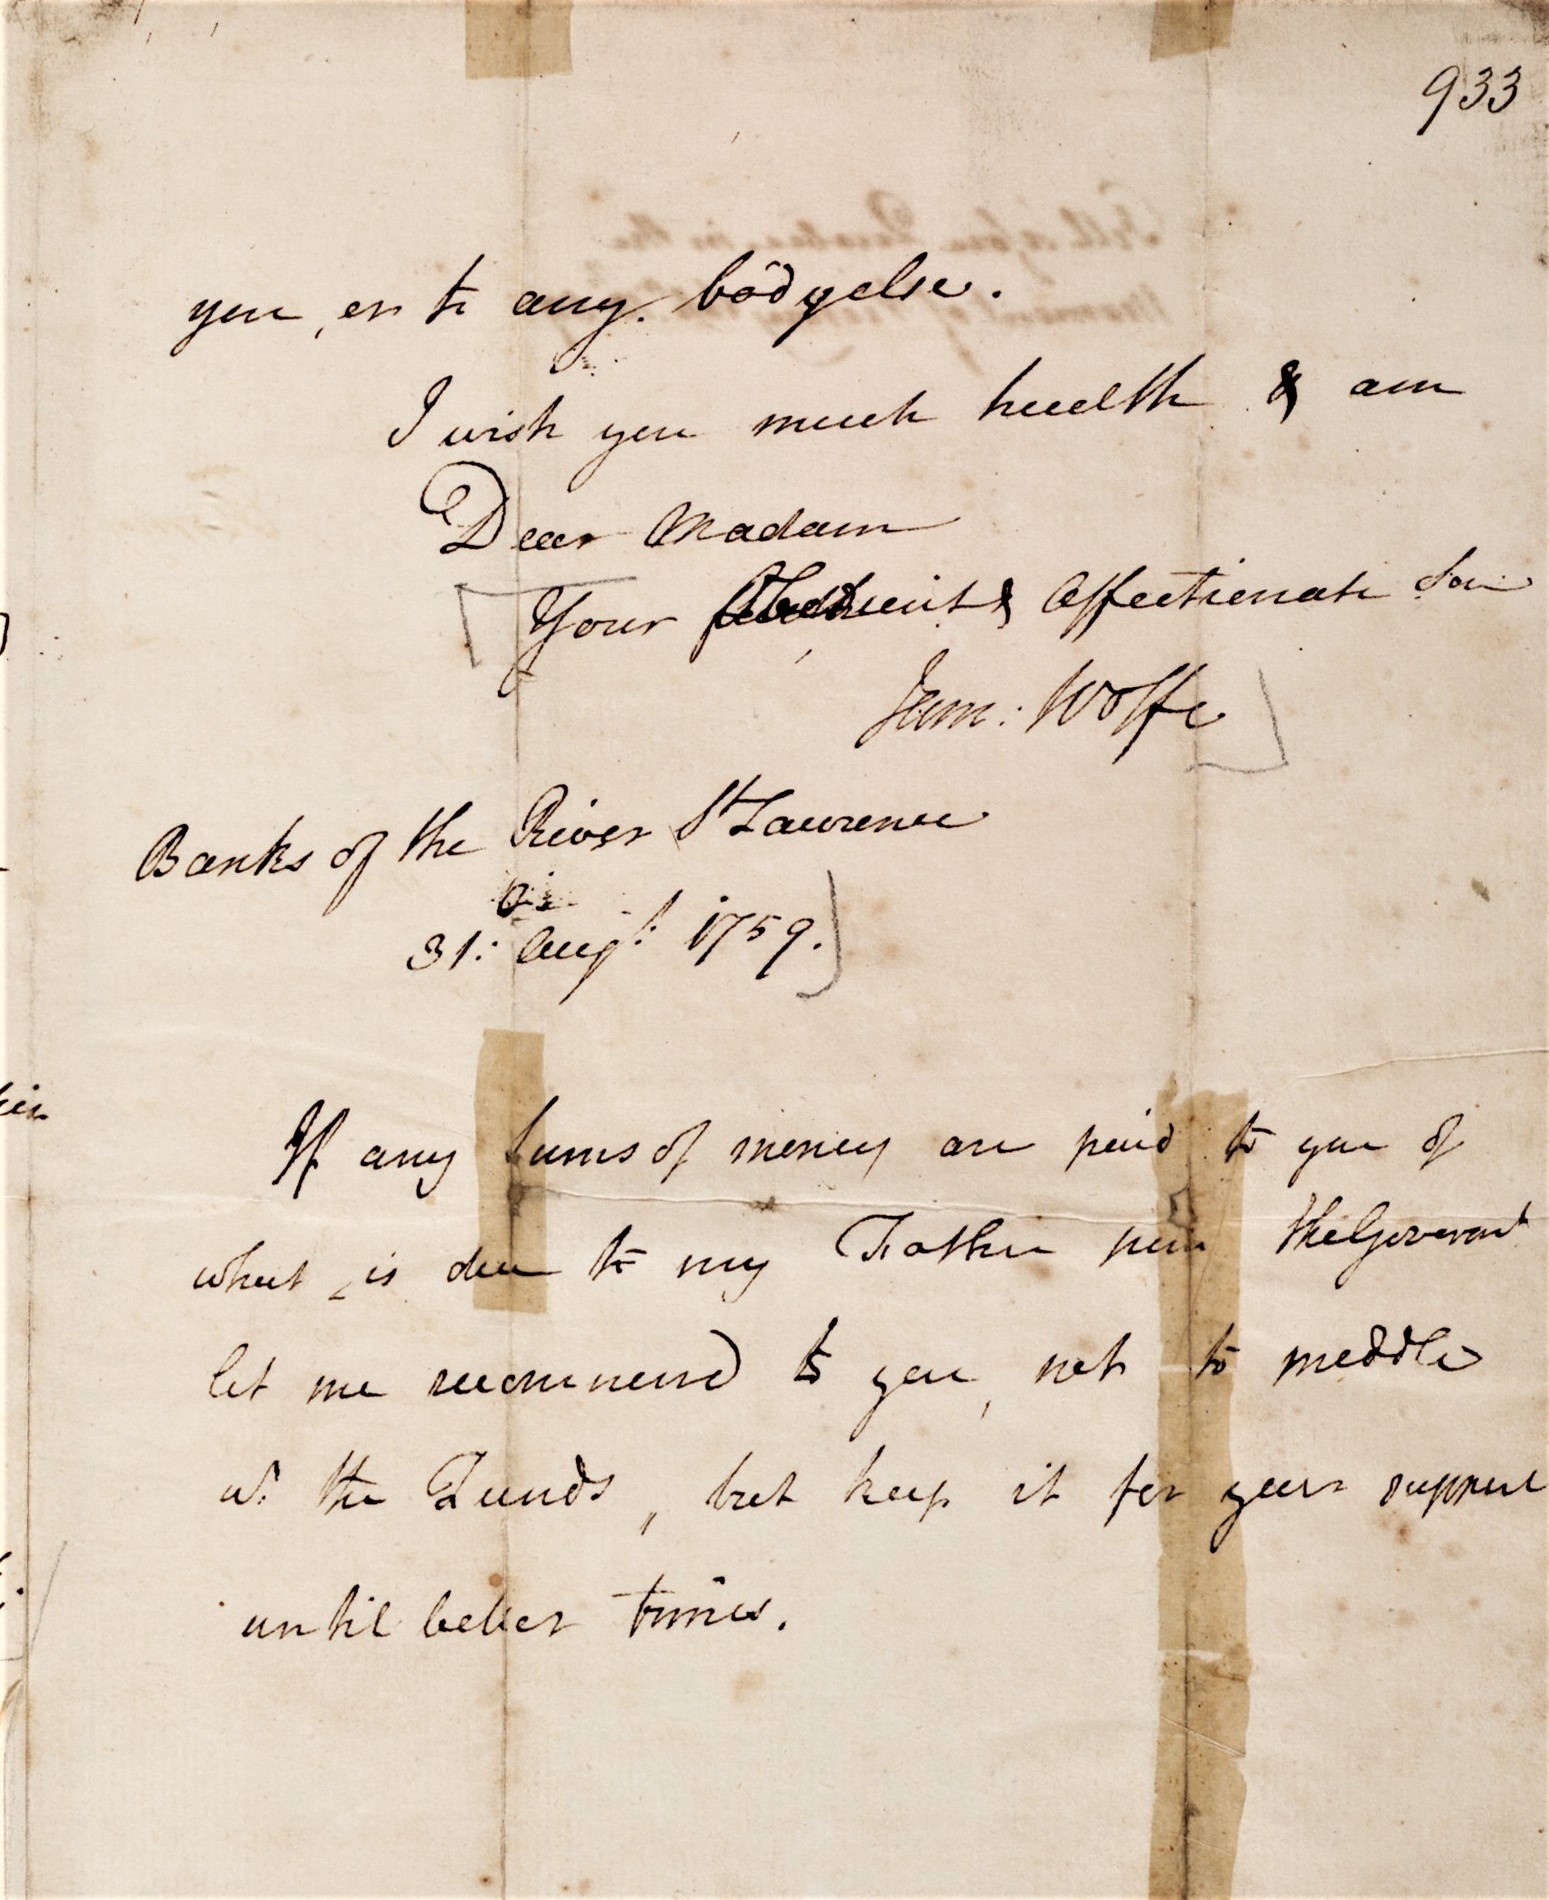 933
you, or to any body else.
I wish you much health & am
Dear Madam
Your Obedient & Affectionate Son
Jam: Wolfe
Banks of the River St Lawrence
31: Augt: 1759.
If any sums of money are paid to you of
what is due to my Father from the Governmt
let me recommend to you, not to meddle
wt the Funds, but keep it for your support
until better times.